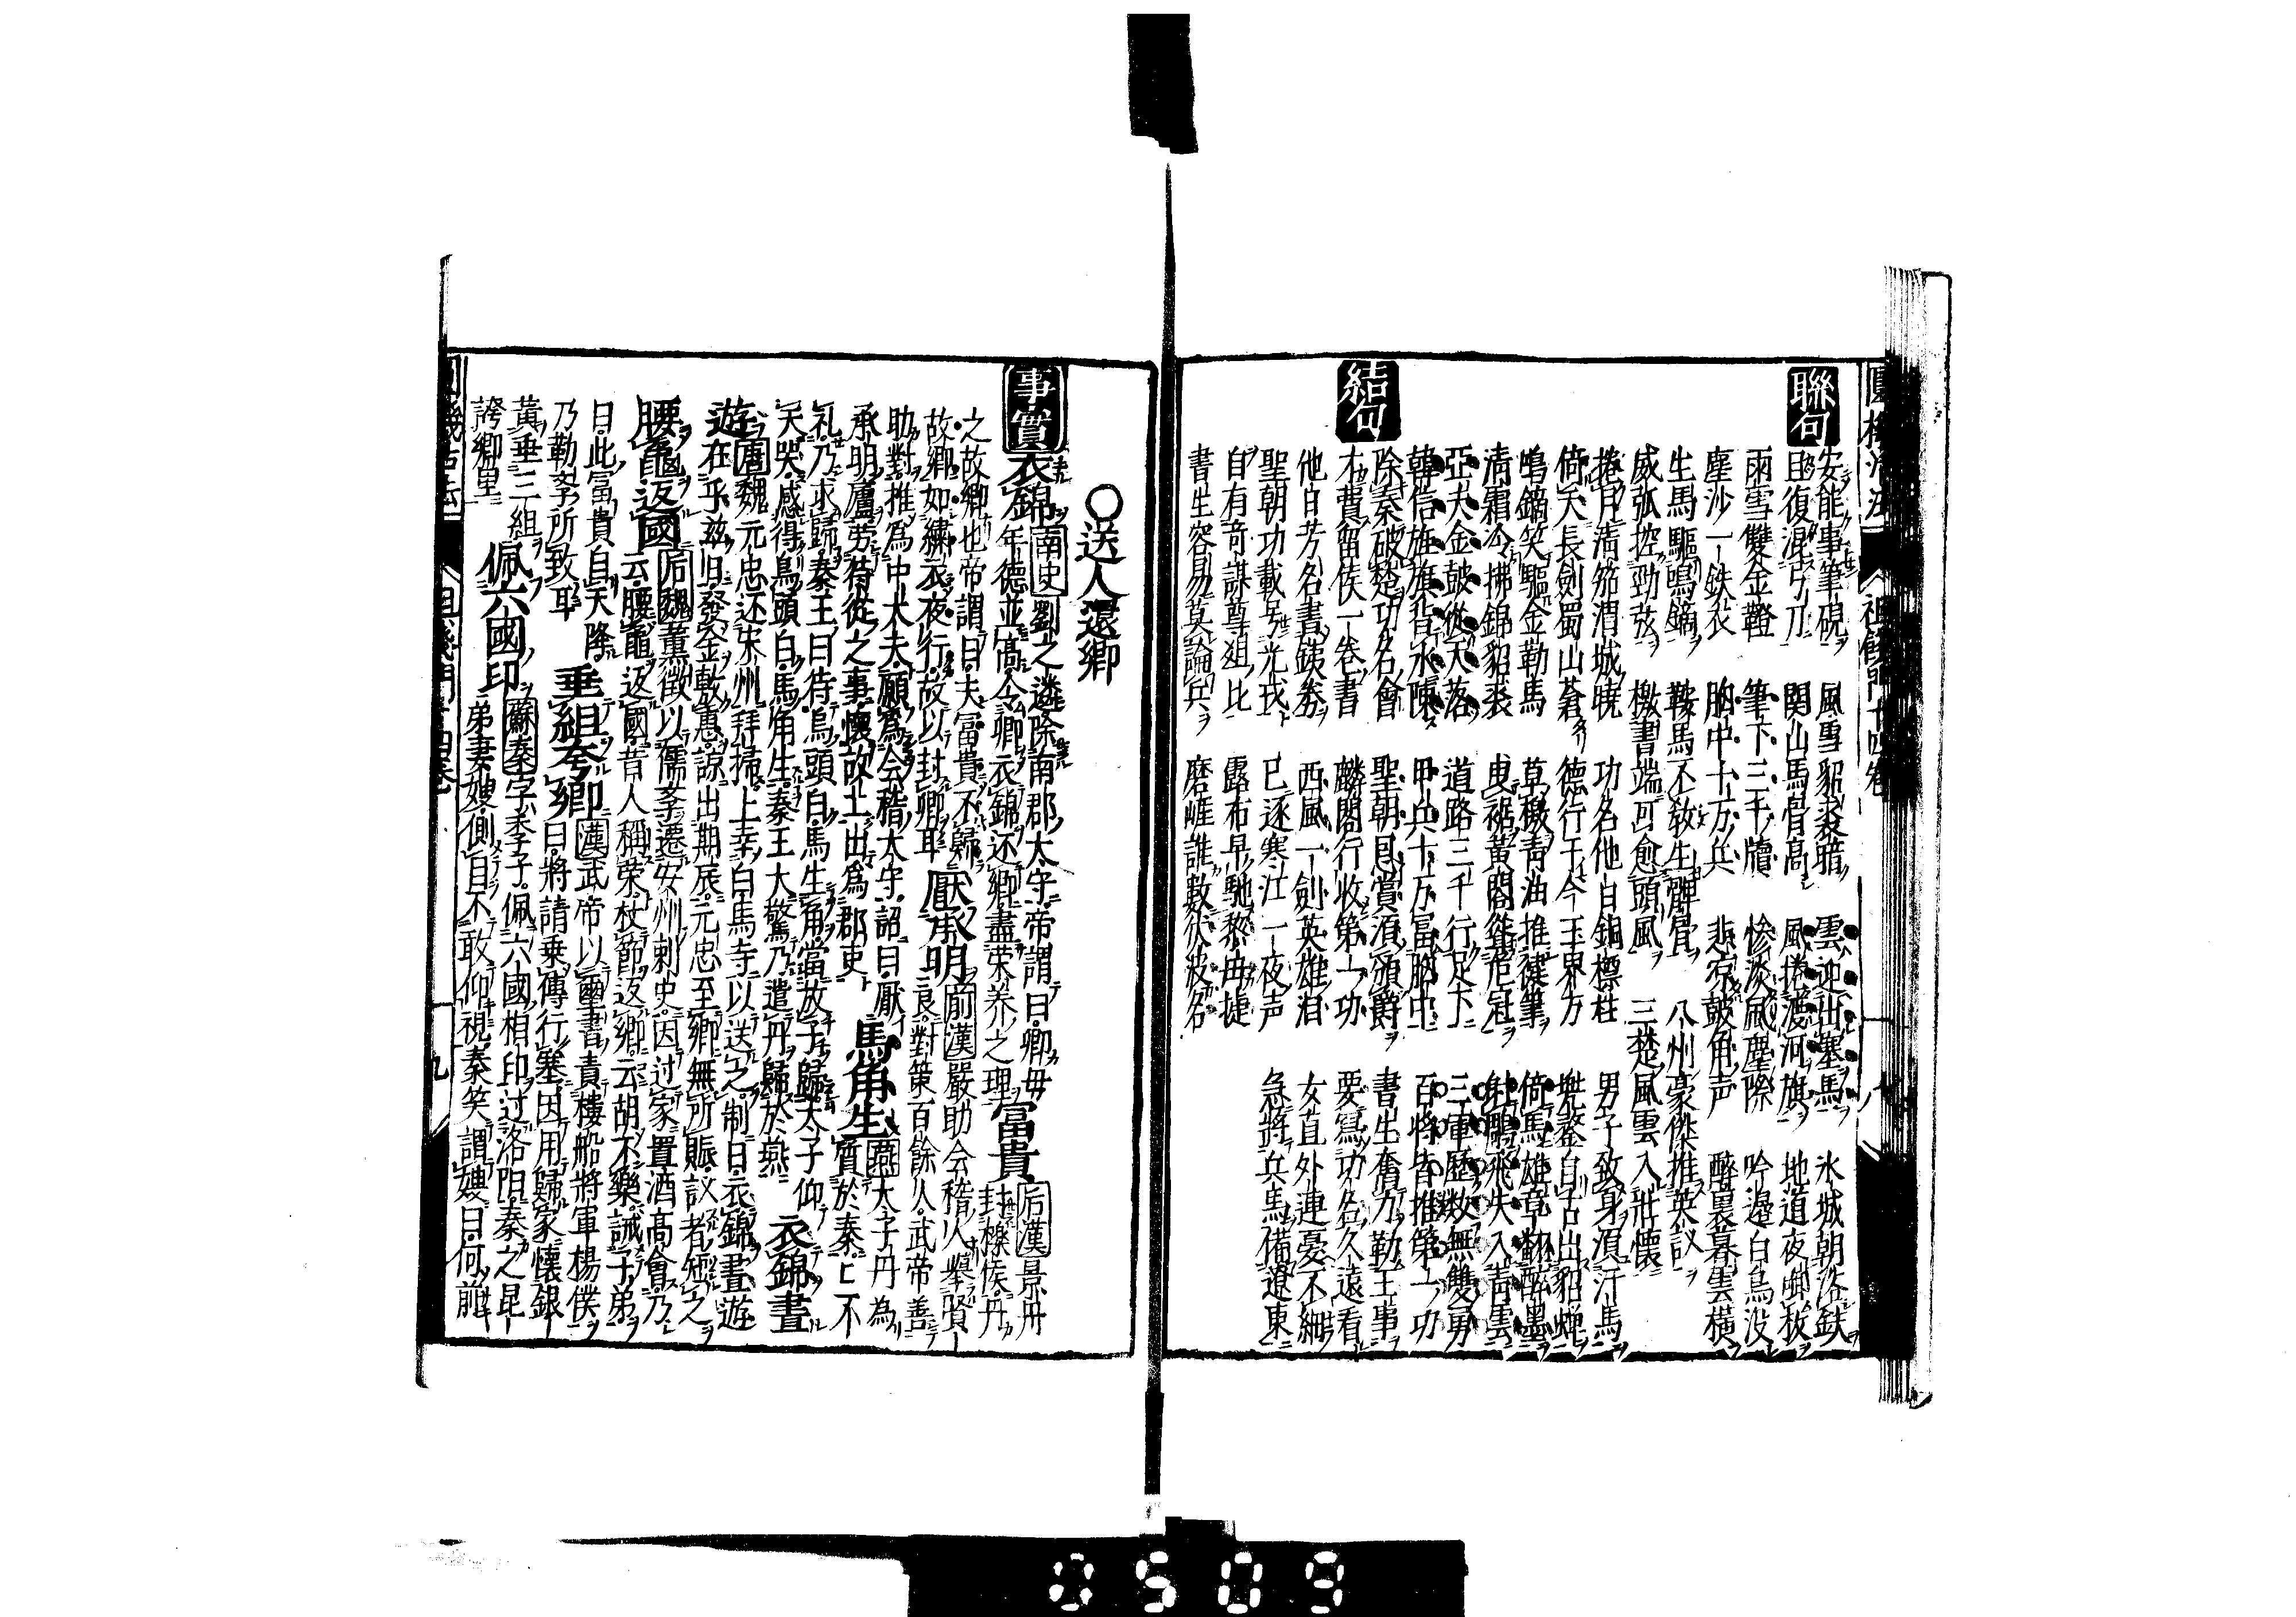 聯句
安能事筆硯　風雪貂裘暗　雲迎出塞馬　氷城朝洗鉄
且復混弓刀　関山馬骨高　風捲渡河旗　地道夜啣枚
雨雪雙金鞚　筆下三千牘　惨淡風塵際　吟邉白鳥没
塵沙一鉄衣　胸中十万兵　悲凉皷角声　醉裏暮雲横
生馬驅鳴鏑　鞍馬不教生髀骨　八州豪傑推英議
威弧控勁弦　檄書端可愈頭風　三楚風雲入壯懷
捲月清笳渭城曉　功名他日銅標柱　男子致身須汗馬
倚天長劍蜀山蒼　德行于今玉東方　兠鍪自古出貂蝉
鳴鏑笑驅金勒馬　草檄青油推健筆　倚馬雄章翻醉墨
清霜冷拂錦貂裘　曳裾黄閤聳危冠　射鵰飛失入青雲
亞夫金皷從天落　道路三千行足下　三軍歴数無雙勇
韓信旌旗背水陳　甲兵十万冨胸中　百將皆推第一功
結句
除秦破楚功名會　聖朝肙賞須頒爵　書生奮力勤王事
不費留侯一巻書　麟閣行收第一功　要寫功名久遠看
他日芳名書鉄券　西風一劍英雄泪　女直外連憂不細
聖朝功載号光戎　已逐寒江一夜声　急將兵馬備遼東
自有奇謀尊爼比　露布早馳黎毎捷
書生容易莫論兵　磨崖誰數伏波名
○送人還鄉
事實
衣錦　南史　劉之遴除南郡太守帝謂曰卿毋
年德並高今卿衣錦还鄉盡荣养之理　冨貴　后漢　景丹
封櫟侯丹
之故鄉也帝謂曰夫冨貴不歸
故鄉如繡衣夜行故以封卿耳　厭承明　前漢　嚴助会稽人擧賢
良對策百餘人武帝善
助對推為中大夫願為会稽太守詔曰厭
承明廬劳侍從之事懷故土出為郡吏　馬角生　燕　太子丹為
質於秦匕不
礼乃求歸秦王曰待烏頭白馬生角當放子歸太子仰
天哭感得烏頭白馬角生秦王大驚乃遣丹歸於燕　衣錦晝
遊　唐　魏元忠还宋州拜掃上幸白馬寺以送之制曰衣錦晝遊
在乎兹旧發金敷惠諒出期辰元忠至鄉無所賑議者短之
腰龜返國　后魏　薫徴以儒李遷安州刺史因过家置酒高會乃
云腰龜返國昔人稱荣杖節返鄉云胡不樂誡子弟
曰此富貴自天降　垂組夸鄉　漢　武帝以璽書責樓船將軍楊僕
乃勒李所致耳　曰將請乗傳行塞因用歸家懷銀
黄垂三組　佩六國印　蘇秦　字季子佩六國相印过洛阳秦之昆
誇鄉里　弟妻嫂側目不敢仰視秦笑謂嫂曰何前
祖餞門十四巻
九
0509